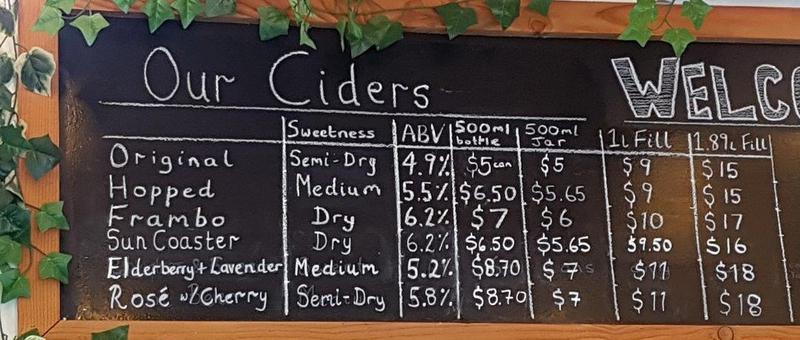 Our Ciders WELCO
Sweetness ABV 500ml bottle 500ml Jar 1L Fill 1.89L Fill
Original Semi-Dry 4.9% $5can $5 $9 $15
Hopped Medium 5.5% $6.50 $5.65 $9 $15
Frambo Dry 6.2% $7 $6 $10 $17
Sun Coaster Dry 6.2% $6.50 $5.65 $9.50 $16
Elderberry + Lavender Medium 5.2% $8.70 $7 $11 $18
Rosé w Cherry Semi-Dry 5.8% $8.70 $7 $11 $18